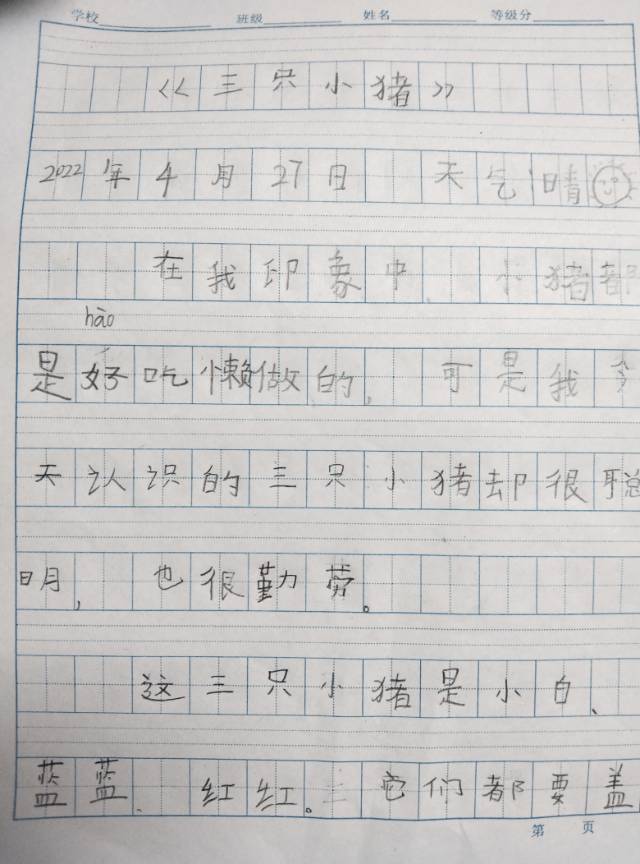 学校 班级 姓名 等级分
《三只小猪》
2022年4月27日 天气晴
在我印象中、小猪都
hào
是好吃懒做的，可是我今
天认识的三只小猪却很聪
明，也很勤劳。
这三只小猪是小白、
蓝蓝、红红。它们都要盖
第 页